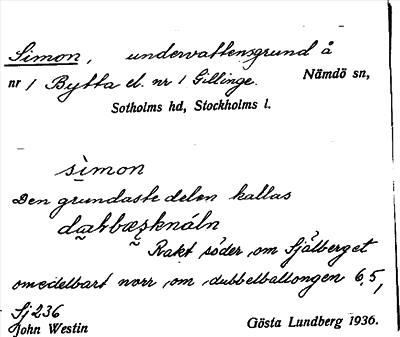 Simon, undervattensgrund å
nr 1 Bytta el. nr 1 Gillinge. Nämdö sn,
Sotholms hd, Stockholms l.
sìmon
Den grundaste delen kallas
Rakt söder om Själberget
omedelbart norr om dubbelballongen 6,5,
Sj 236
John Westin Gösta Lundberg 1936.